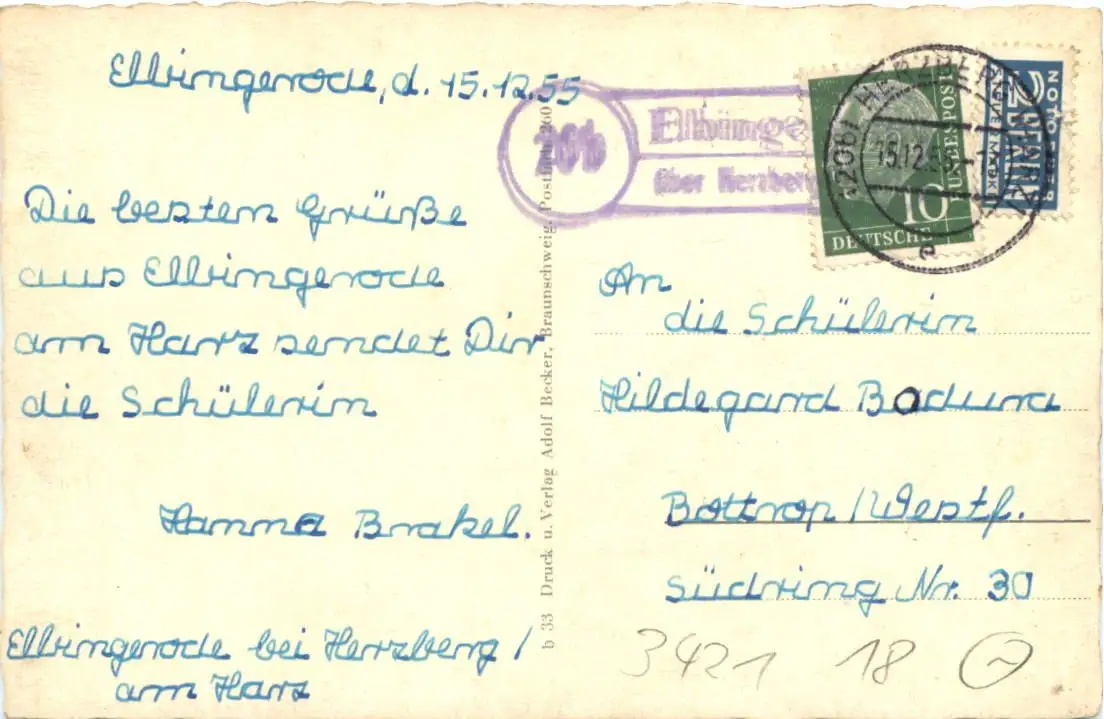 Elbingerode, d. 15.12.55
Die besten Grüße
aus Elbingerode
am Harz sendet Dir
die Schülerin
Hanna Brakel.
Elbingerode bei Herzberg /
am Harz
b 33 Druck u. Verlag Adolf Becker, Braunschweig, Postfach 260
20b
Elbinge
über Herzberg
(20b) HERZBERG
15.12.55
e
10
DEUTSCHE
BUNDESPOST
NOTOPFER
2
BERLIN
STEUERMARKE
An
die Schülerin
Hildegard Badura
Bottrop / Westf.
Südring Nr. 30
3421 18